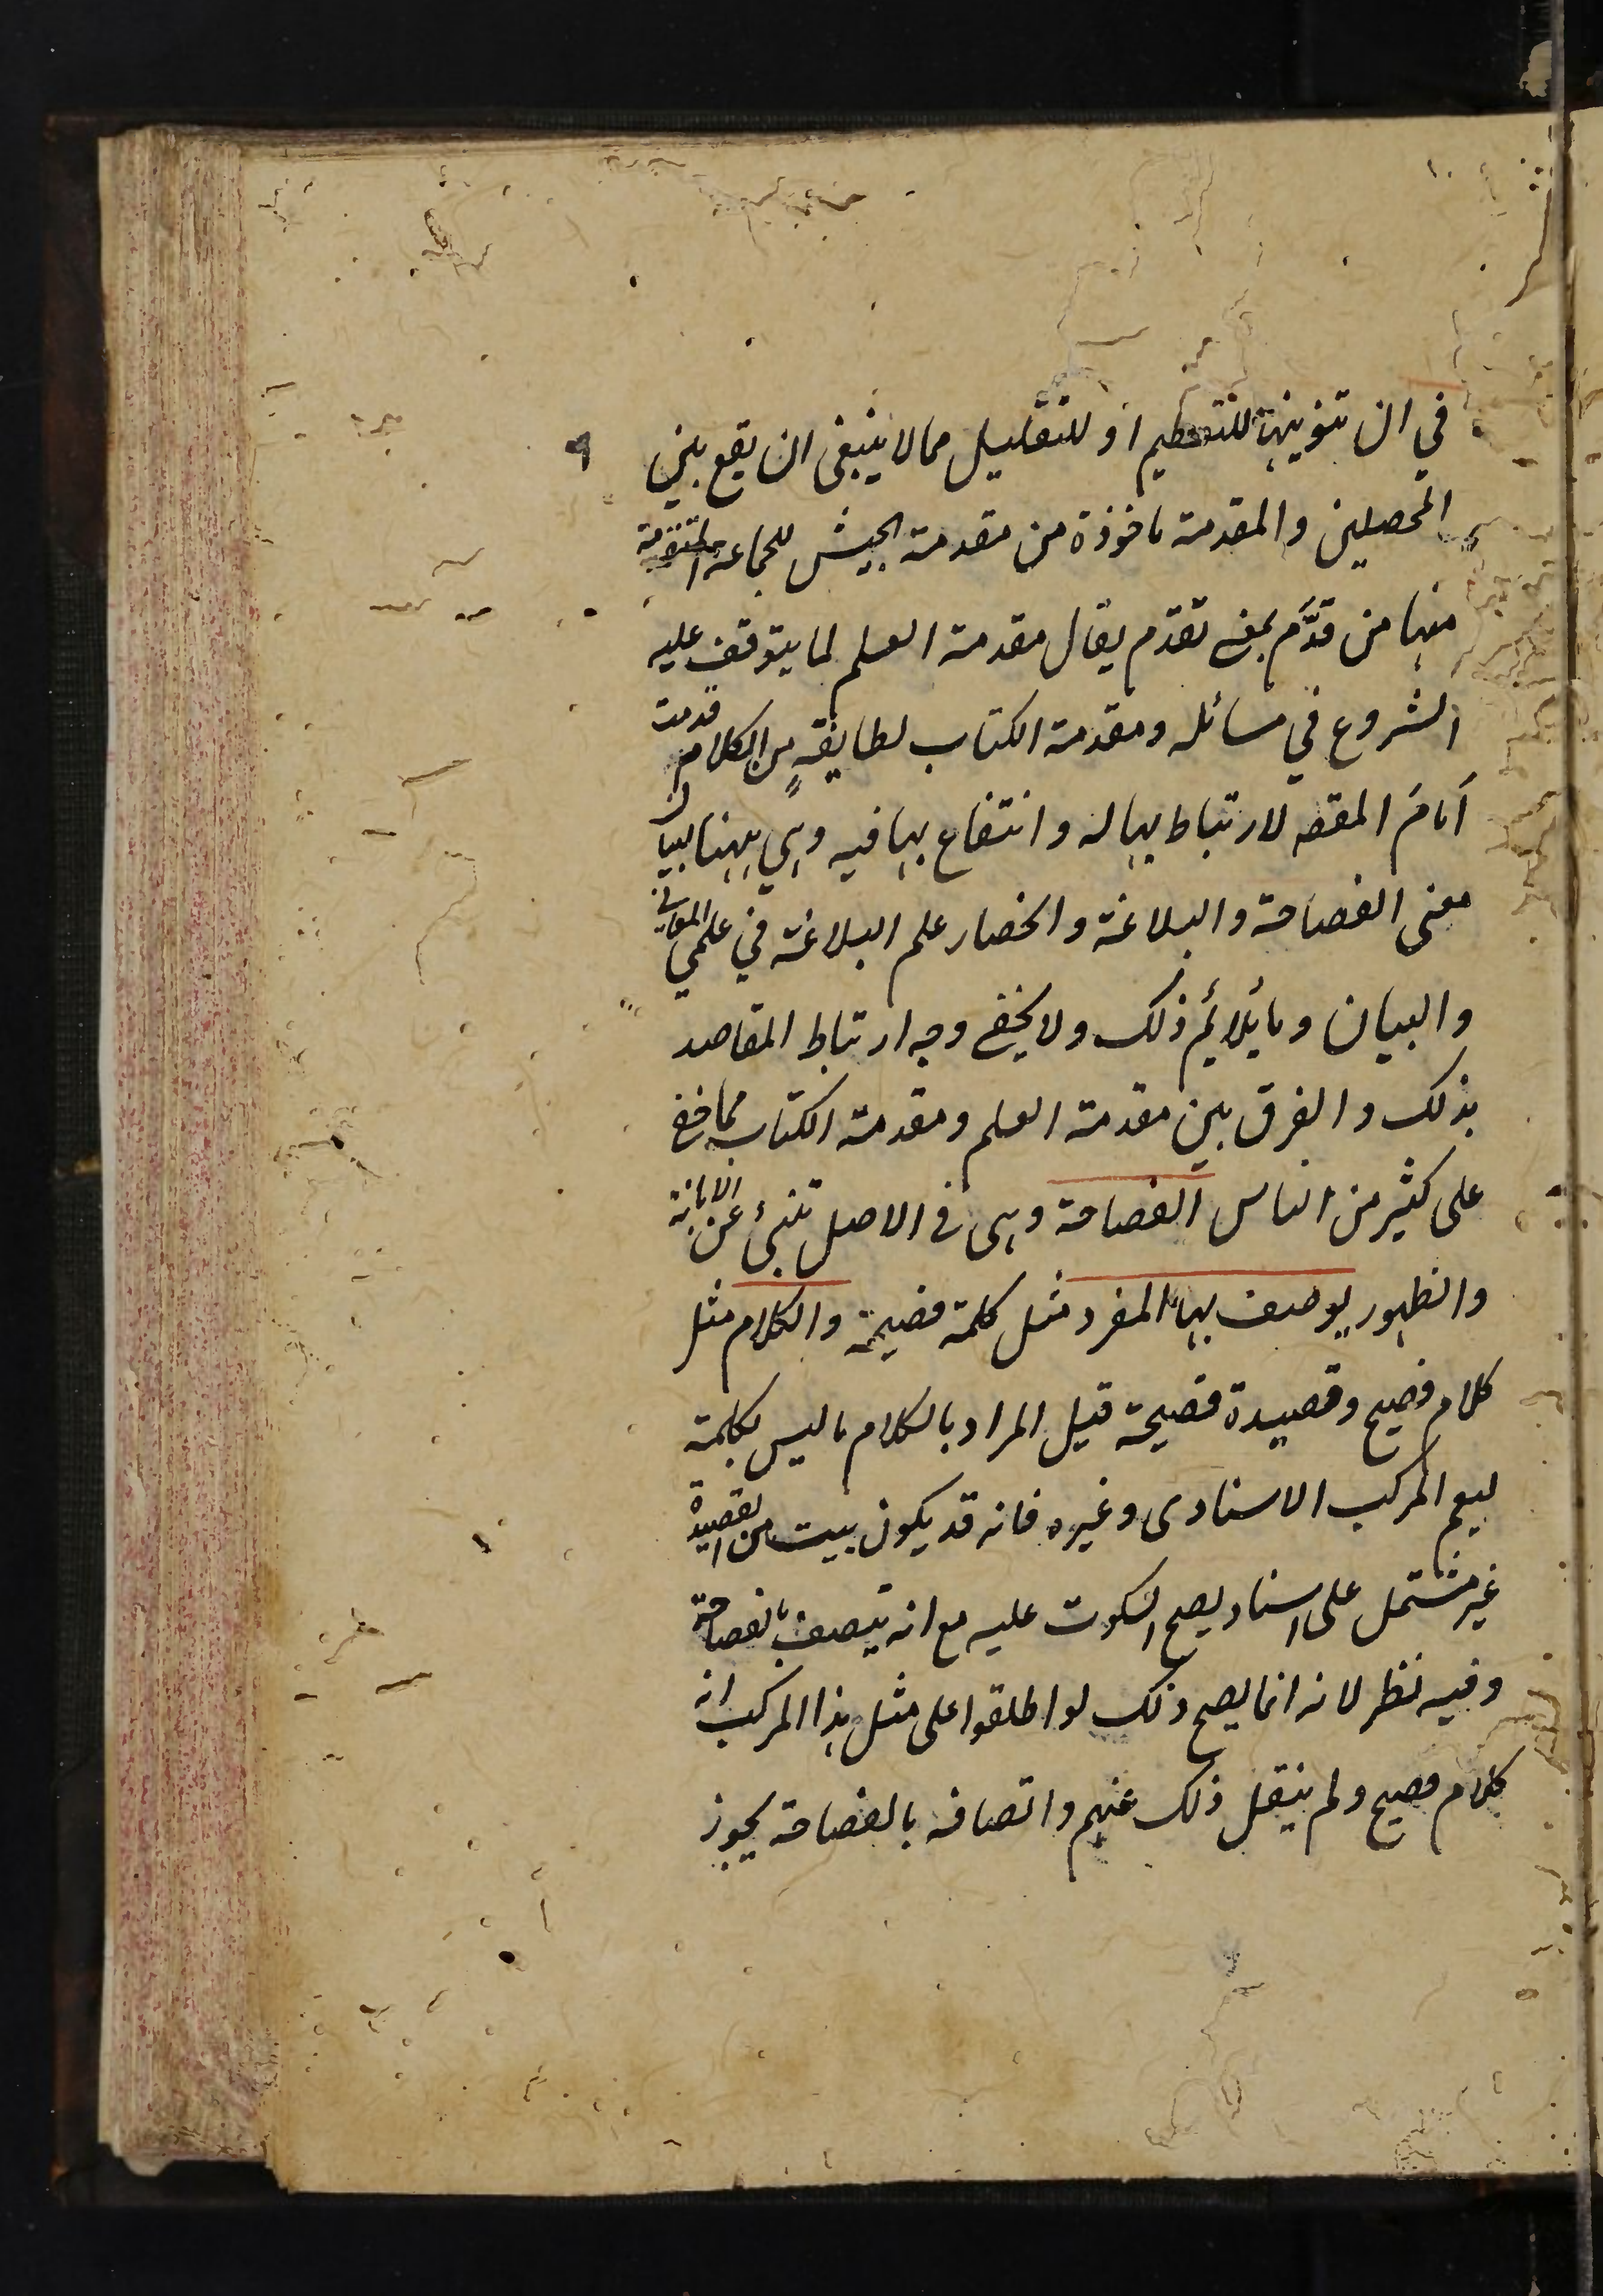 في ان تنوينها للتعظيم او للتقليل مما لا ينبغى ان يقع بين
المحصلين والمقدمة ماخوذة من مقدمة الجيش للجماعة المتقدمة
منها من قدَّم بمعنى تقدم يقال مقدمة العلم لما يتوقف عليه
الشروع في مسائله ومقدمة الكتاب لطايفةٍ من الكلام قدمت
اَمامَ المقصد لارتباط بها له وانتفاع بها فيه وهي ههنا لبيان
معنى الفصاحة والبلاغة وانحصار علم البلاغة في علمي المعاني
والبيان وما يُلائم ذلك ولا يخفى وجه ارتباط المقاصد
بذلك والفرق بين مقدمة العلم ومقدمة الكتاب مما خفى
على كثير من الناس الفصاحة وهى فى الاصل تنبئ عن الابانة
والظهور يوصف بها المفرد مثل كلمة فصيحة والكلام مثل
كلام فصيح وقصيدة فصيحة قيل المراد بالكلام ما ليس بكلمة
ليعم المركب الاسنادى وغيره فانه قد يكون بيت من القصيدة
غير مشتمل على اسناد يصح السكوت عليه مع انه يتصف بالفصاحة
وفيه نظر لانه انما يصح ذلك لو اطلقوا على مثل هذا المركب انه
كلام فصيح ولم ينقل ذلك عنهم واتصافه بالفصاحة يجوز